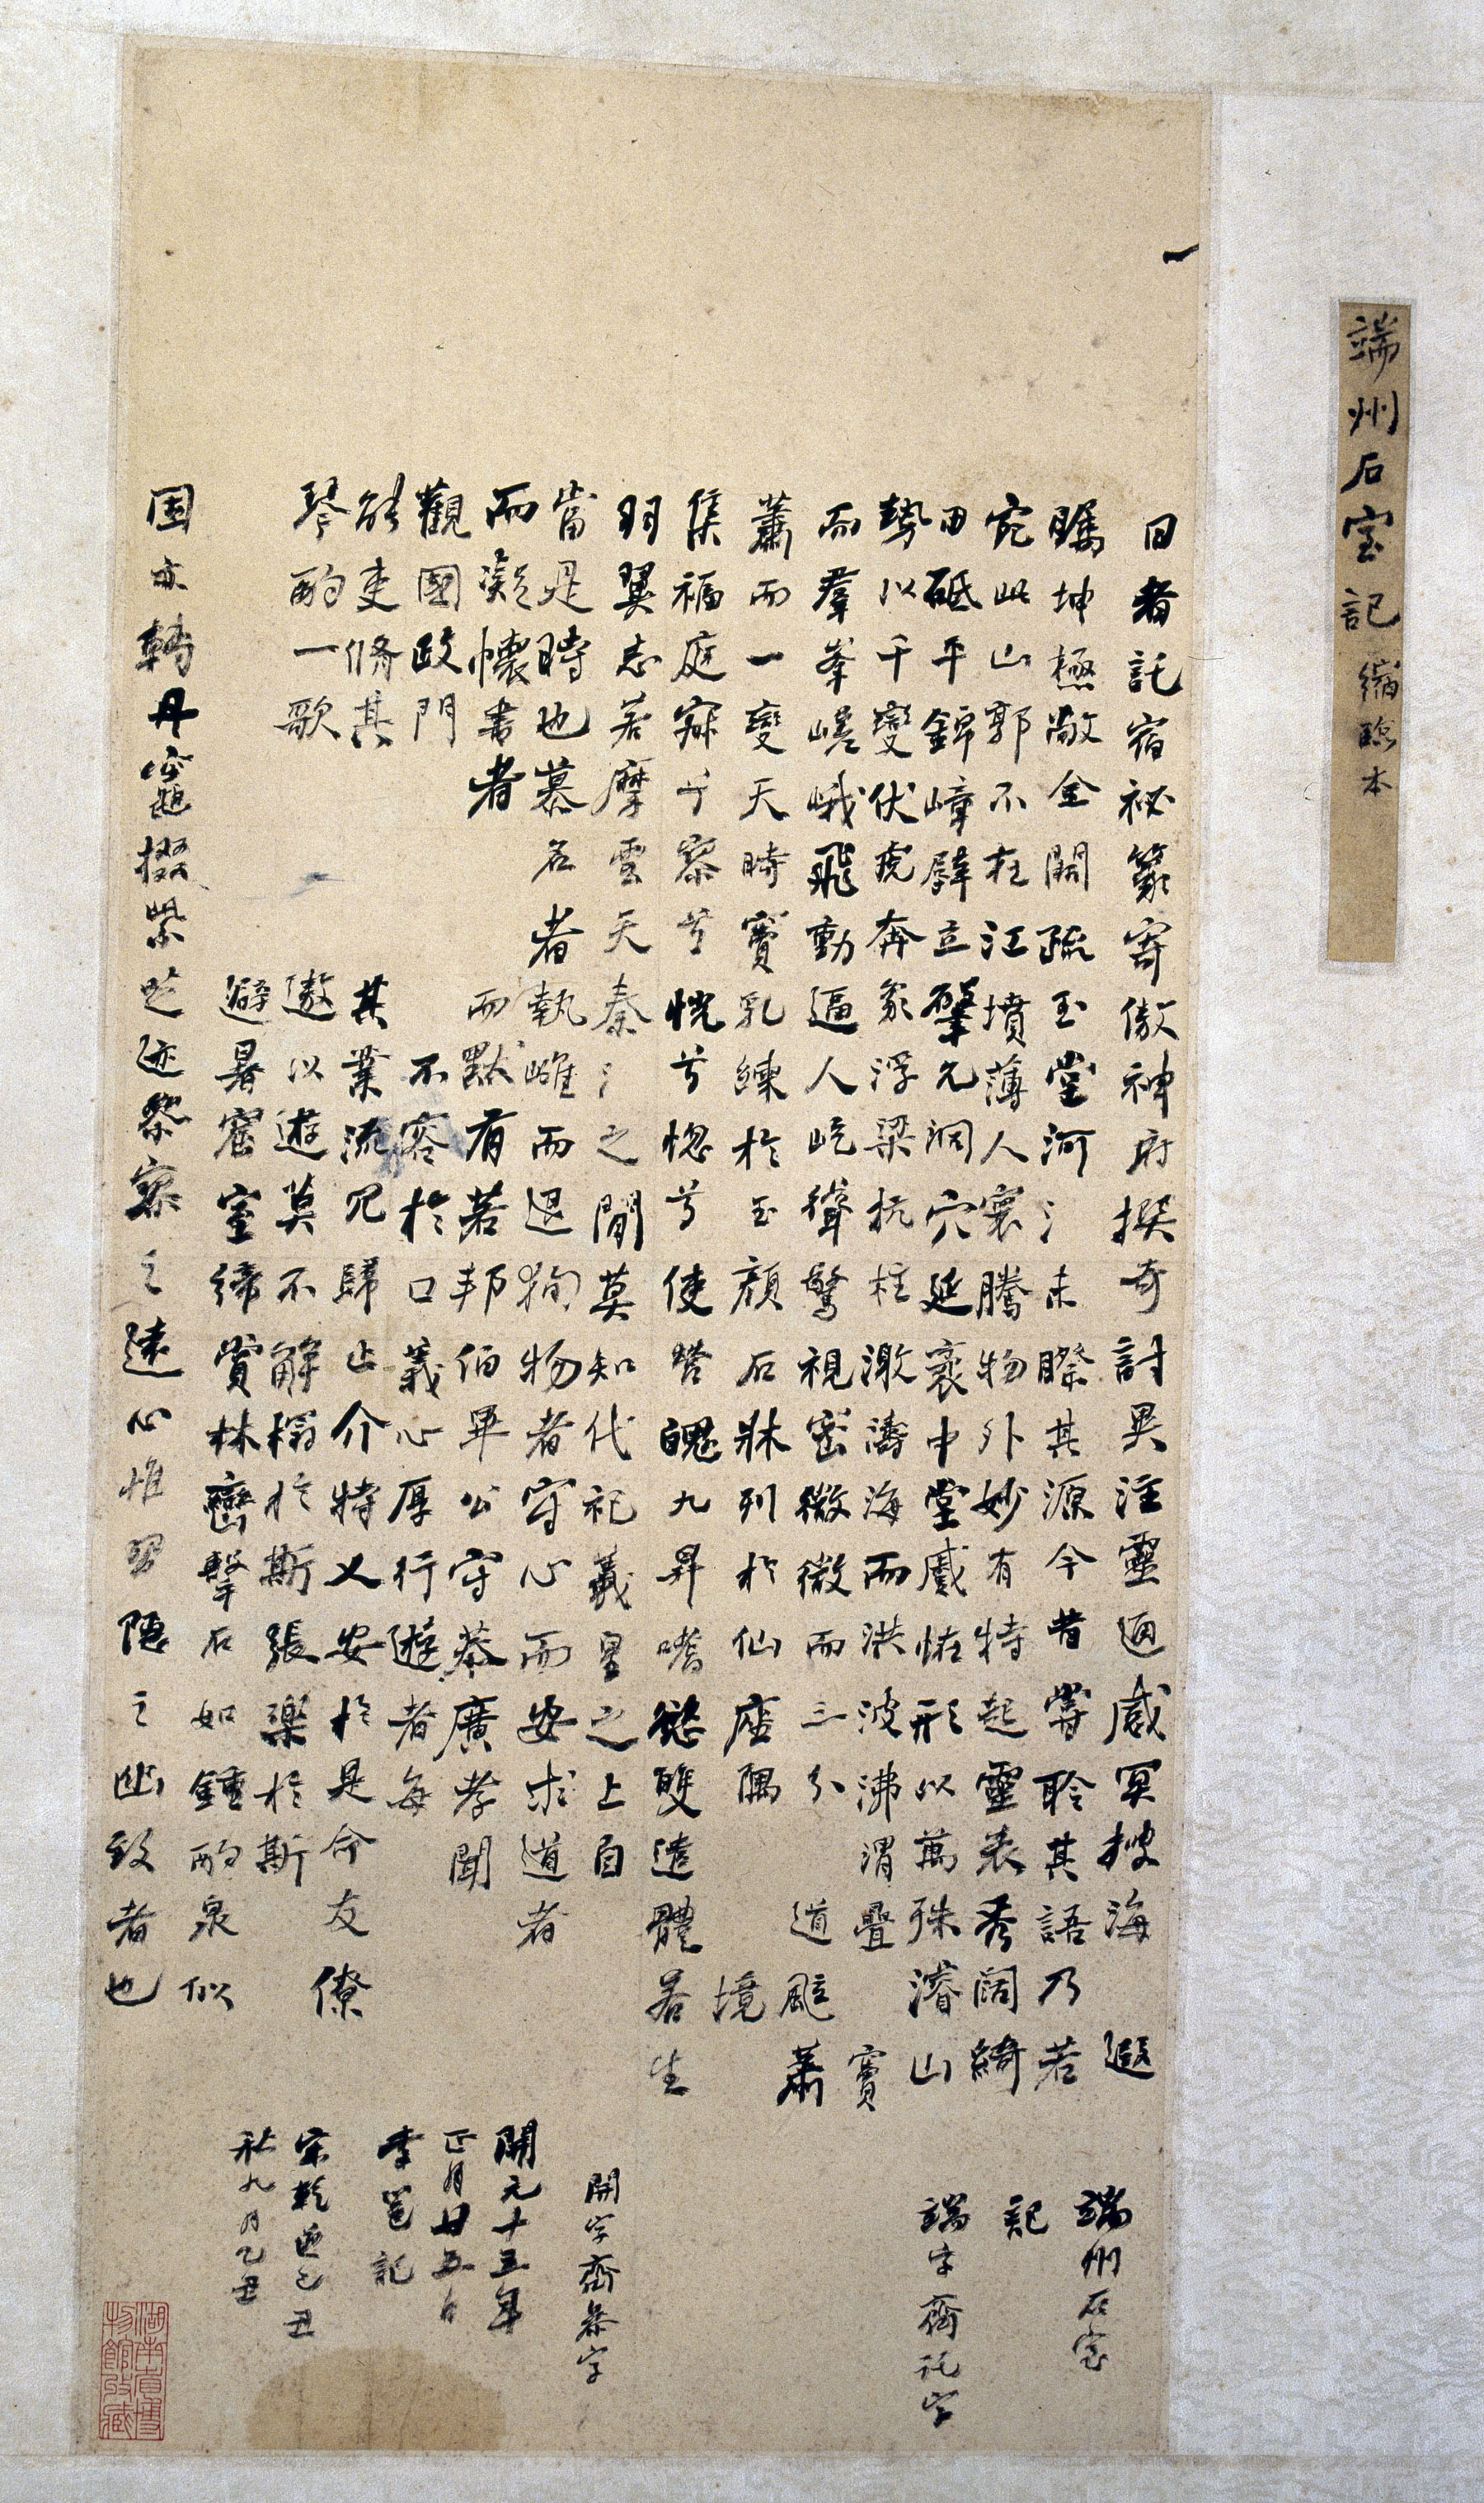 端州石室記 縮臨本
一
日者託宿祕籙寄傲神府撰奇討異注靈通感冥搜海遐
矚坤極敞金闕疏玉堂河氵未暌其源今昔嘗聆其語乃若
宛此山郭不在江墳薄人寰騰物外妙有特起靈表秀闊綺
田砥平錦嶂壁立肇允洞穴延袤中堂盛怪形以萬殊濬山
勢以千變伏虎奔象浮梁抗柱激濤海而洪波沸渭疊竇
而羣峯嵯峨飛動逼人屹聳驚視密微微而三分道颬蕭
蕭而一變天時竇乳練於玉顏石牀列於仙座隅境
集福庭寂兮寥兮恍兮惚兮使營魄九昇嗜慾雙遣體若生
羽翼志若摩雲天秦氵之閒莫知代祀羲皇之上自
當是時也慕名者執雌而退狥物者守心而安求道者
而凝懷書者而默有若邦伯畢公守恭廣孝聞
觀國政門不容於口義心厚行遊者每
能吏脩其其業流冗歸止介特乂安於是命友僚
琴酌一歌遨以遊莫不解榻於斯張樂於斯
避暑窟室締賞林巒擊石如鍾酌泉似
固亦轉丹竈掇紫芝迹參寥之遠心惟習隱之幽致者也
端州石室
記
端字齋託字
開字齋恭字
開元十五年
正月廿五日
李邕記
宋乾道己丑
秋九月乙丑
湖南省博
物館收藏